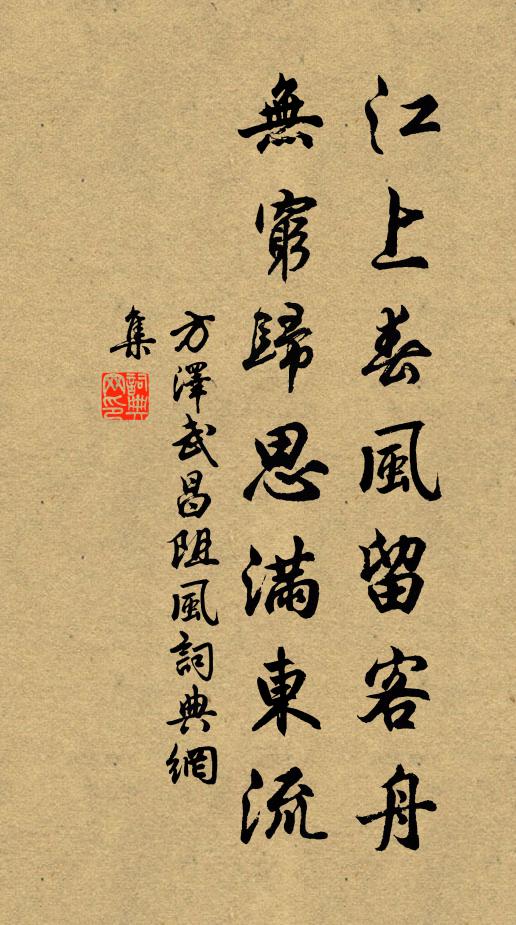 江上春風留客舟
無窮歸思滿東流
方澤武昌阻風詞典網
集
詞典網印